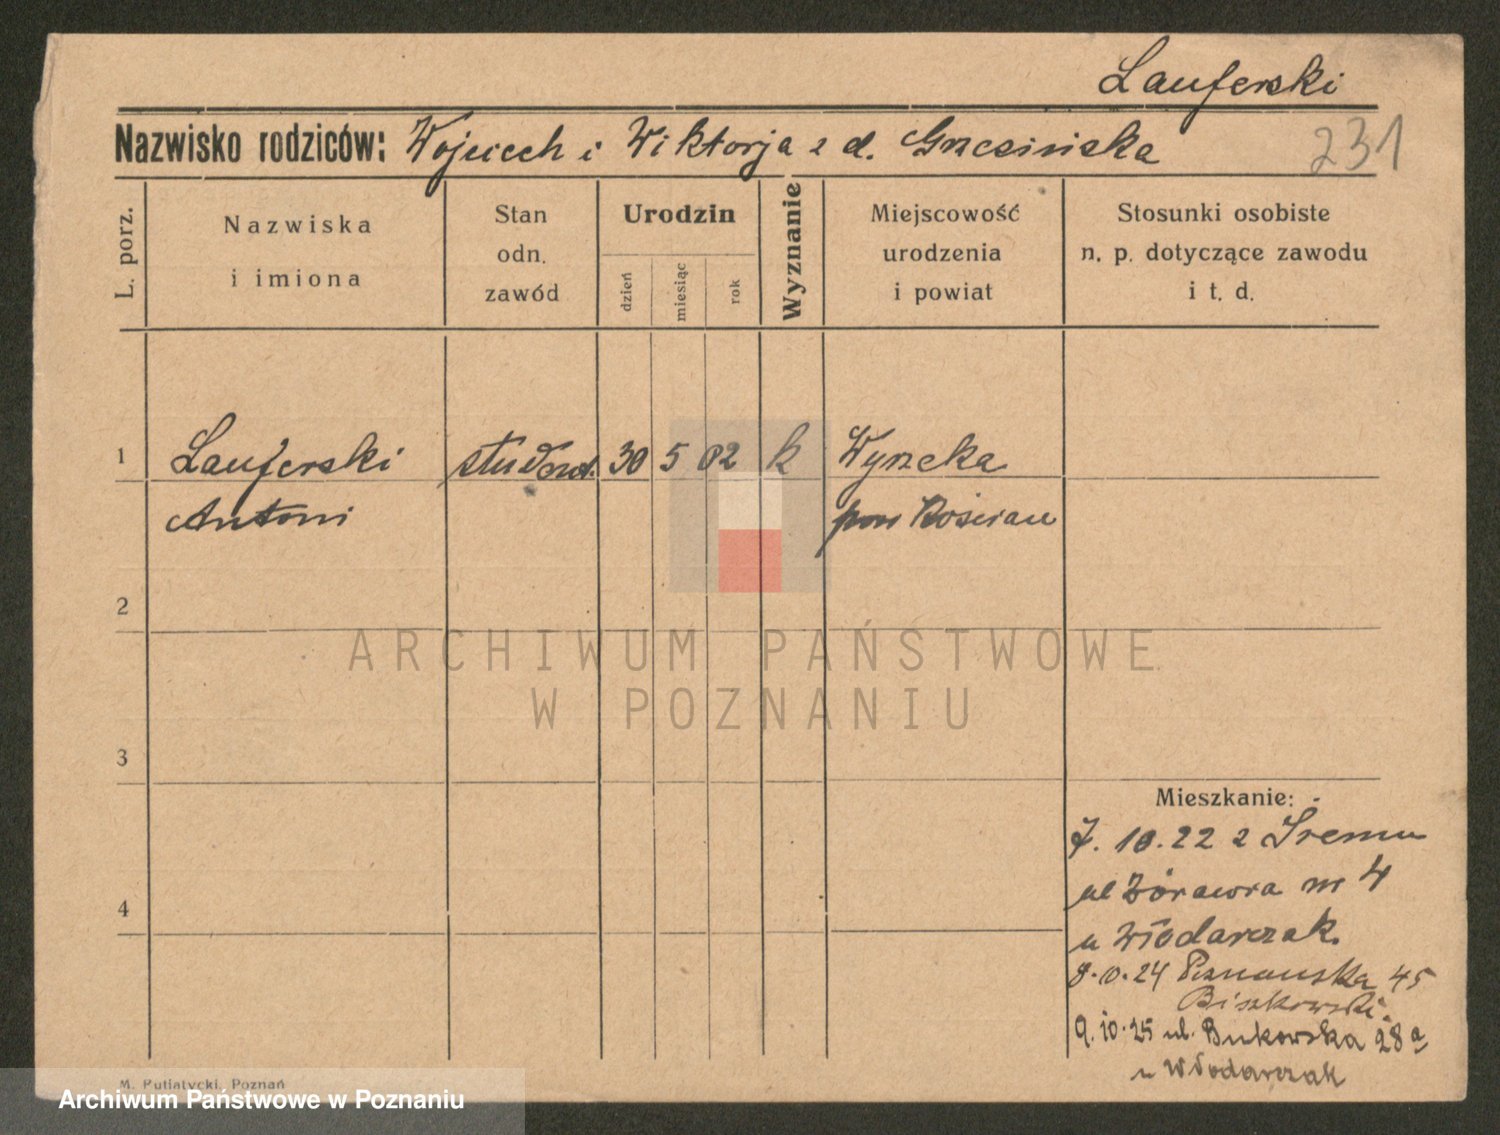 Lauferski
Nazwisko rodziców: Wojciech i Wiktorja z d. Grzesińska
231
L. porz.
Nazwiska
i imiona
Stan
odn.
zawód
Urodzin
dzień
miesiąc
rok
Wyznanie
Miejscowość
urodzenia
i powiat
Stosunki osobiste
n. p. dotyczące zawodu
i t. d.
1
Lauferski
Antoni
student.
30
5
02
k
Wyrzeka
pow Kościan
2
3
4
Mieszkanie:
7. 10. 22 z Śremu
ul Żórawia nr 4
u Włodarczak.
8.10.24 Poznańska 45
Biszkowski.
9.10.25 ul. Bukowska 28a
u Włodarczak
M. Putiatycki, Poznań
ARCHIWUM PAŃSTWOWE
W POZNANIU
Archiwum Państwowe w Poznaniu